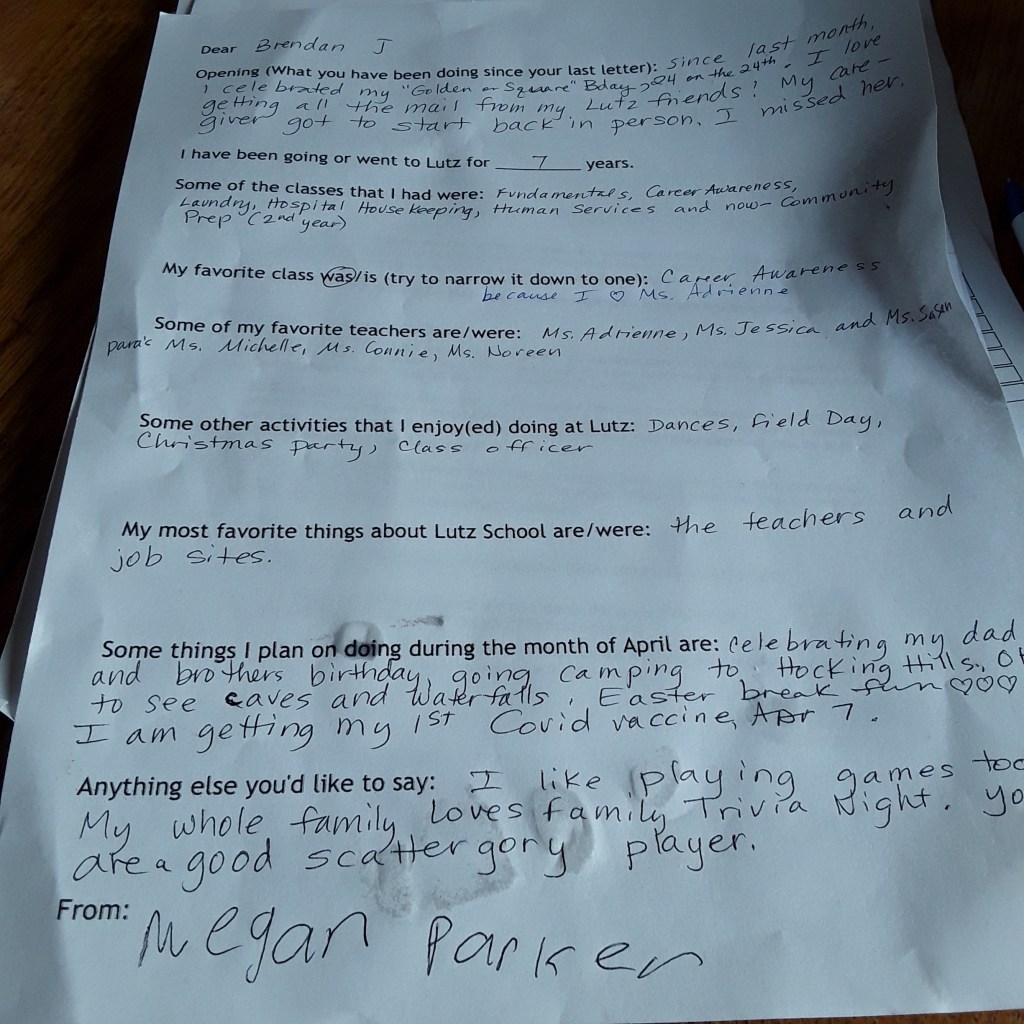 Dear Brendan J
Opening (What you have been doing since your last letter): since last month,
I celebrated my "Golden or Square" Bday, 24 on the 24th. I love
getting all the mail from my Lutz friends! My care-
giver got to start back in person. I missed her.
I have been going or went to Lutz for 7 years.
Some of the classes that I had were: Fundamentals, Career Awareness,
Laundry, Hospital House Keeping, Human Services and now- Community
Prep (2nd year)
My favorite class was/is (try to narrow it down to one): Career Awareness
because I ♡ Ms. Adrienne
Some of my favorite teachers are/were: Ms. Adrienne, Ms. Jessica and Ms. Susan
para's Ms. Michelle, Ms. Connie, Ms. Noreen
Some other activities that I enjoy(ed) doing at Lutz: Dances, Field Day,
Christmas party, Class officer
My most favorite things about Lutz School are/were: the teachers and
job sites.
Some things I plan on doing during the month of April are: celebrating my dad
and brothers birthday, going camping to Hocking Hills, O
to see caves and Waterfalls, Easter break fun ♡♡♡
I am getting my 1st Covid vaccine, Apr 7.
Anything else you'd like to say: I like playing games too
My whole family loves family Trivia Night. yo
are a good scattergory player.
From: Megan Parker